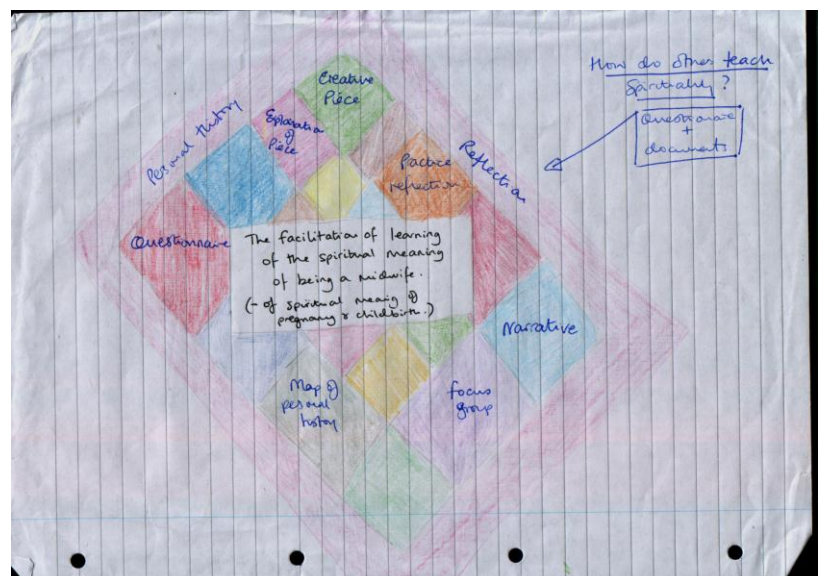 How do others teach
Spirituality?
Questionnaire
+
documents
Creative
Piece
Personal History
Exploration
of
Piece
Practice
reflection
Reflection
Questionnaire
The facilitation of learning
of the spiritual meaning
of being a midwife.
(- of spiritual meaning of
pregnancy & childbirth.)
Narrative
Map of
personal
history
focus
group